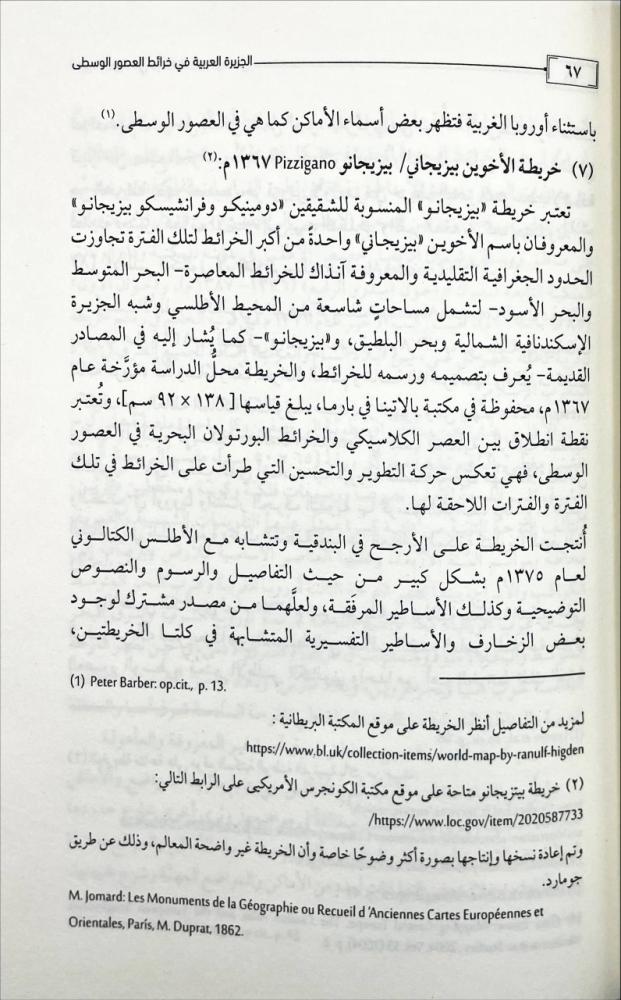 ٦٧
الجزيرة العربية في خرائط العصور الوسطى
باستثناء أوروبا الغربية فتظهر بعض أسماء الأماكن كما هي في العصور الوسطى.(١)
(٧) خريطة الأخوين بيزيجاني/ بيزيجانو Pizzigano ١٣٦٧م:(٢)
تعتبر خريطة «بيزيجانو» المنسوبة للشقيقين «دومينيكو وفرانشيسكو بيزيجانو»
والمعروفان باسم الأخوين «بيزيجاني» واحدةً من أكبر الخرائط لتلك الفترة تجاوزت
الحدود الجغرافية التقليدية والمعروفة آنذاك للخرائط المعاصرة- البحر المتوسط
والبحر الأسود- لتشمل مساحاتٍ شاسعة من المحيط الأطلسي وشبه الجزيرة
الإسكندنافية الشمالية وبحر البلطيق، و«بيزيجانو»- كما يُشار إليه في المصادر
القديمة- يُعرف بتصميمه ورسمه للخرائط، والخريطة محلُّ الدراسة مؤرَّخة عام
١٣٦٧م، محفوظة في مكتبة بالاتينا في بارما، يبلغ قياسها [١٣٨ × ٩٢ سم]، وتُعتبر
نقطة انطلاق بين العصر الكلاسيكي والخرائط البورتولان البحرية في العصور
الوسطى، فهي تعكس حركة التطوير والتحسين التي طرأت على الخرائط في تلك
الفترة والفترات اللاحقة لها.
أُنتجت الخريطة على الأرجح في البندقية وتتشابه مع الأطلس الكتالوني
لعام ١٣٧٥م بشكل كبير من حيث التفاصيل والرسوم والنصوص
التوضيحية وكذلك الأساطير المرفَقة، ولعلَّهما من مصدر مشترك لوجود
بعض الزخارف والأساطير التفسيرية المتشابهة في كلتا الخريطتين،
(1) Peter Barber: op.cit., p. 13.
لمزيد من التفاصيل أنظر الخريطة على موقع المكتبة البريطانية :
https://www.bl.uk/collection-items/world-map-by-ranulf-higden
(٢) خريطة بيتزيجانو متاحة على موقع مكتبة الكونجرس الأمريكى على الرابط التالي:
https://www.loc.gov/item/2020587733/
وتم إعادة نسخها وإنتاجها بصورة أكثر وضوحًا خاصة وأن الخريطة غير واضحة المعالم، وذلك عن طريق
جومارد.
M. Jomard: Les Monuments de la Géographie ou Recueil d 'Anciennes Cartes Européennes et
Orientales, París, M. Duprat, 1862.